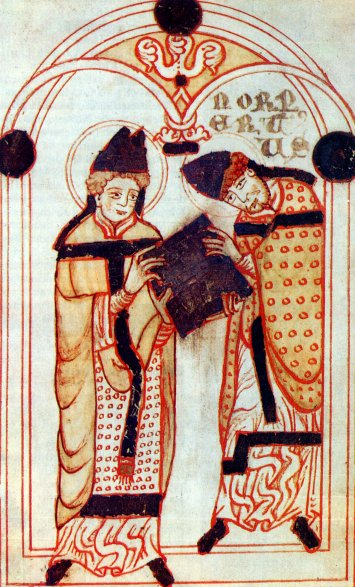 NORP
ERT
US